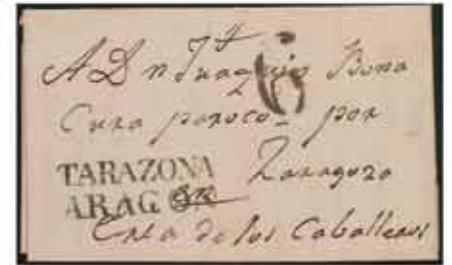 A Dn Juaquin Bona
6
Cura paroco por
TARAZONA
Zaragoza
ARAGON
Exea de los Caballeros